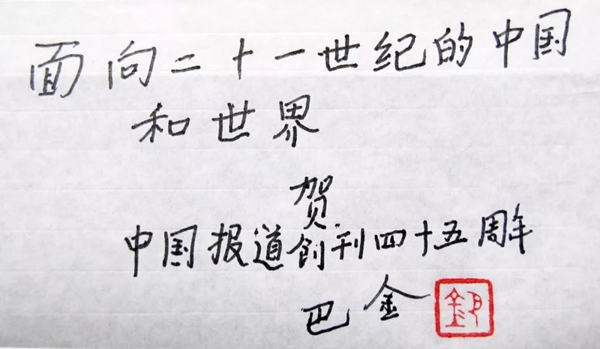 面向二十一世纪的中国
和世界
贺
中国报道创刊四十五周年
巴金